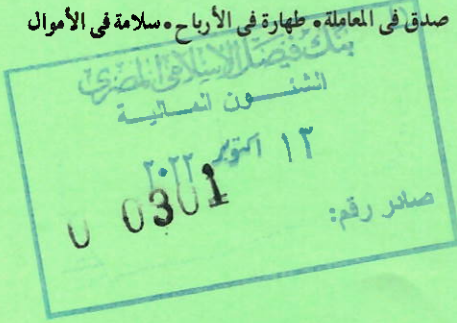 صدق فى المعاملة • طهارة فى الأرباح • سلامة فى الأموال
بنك فيصل الإسلامى المصرى
الشئون المالية
١٣ اكتوبر ٢٠٢٢
0 0301
صادر رقم: